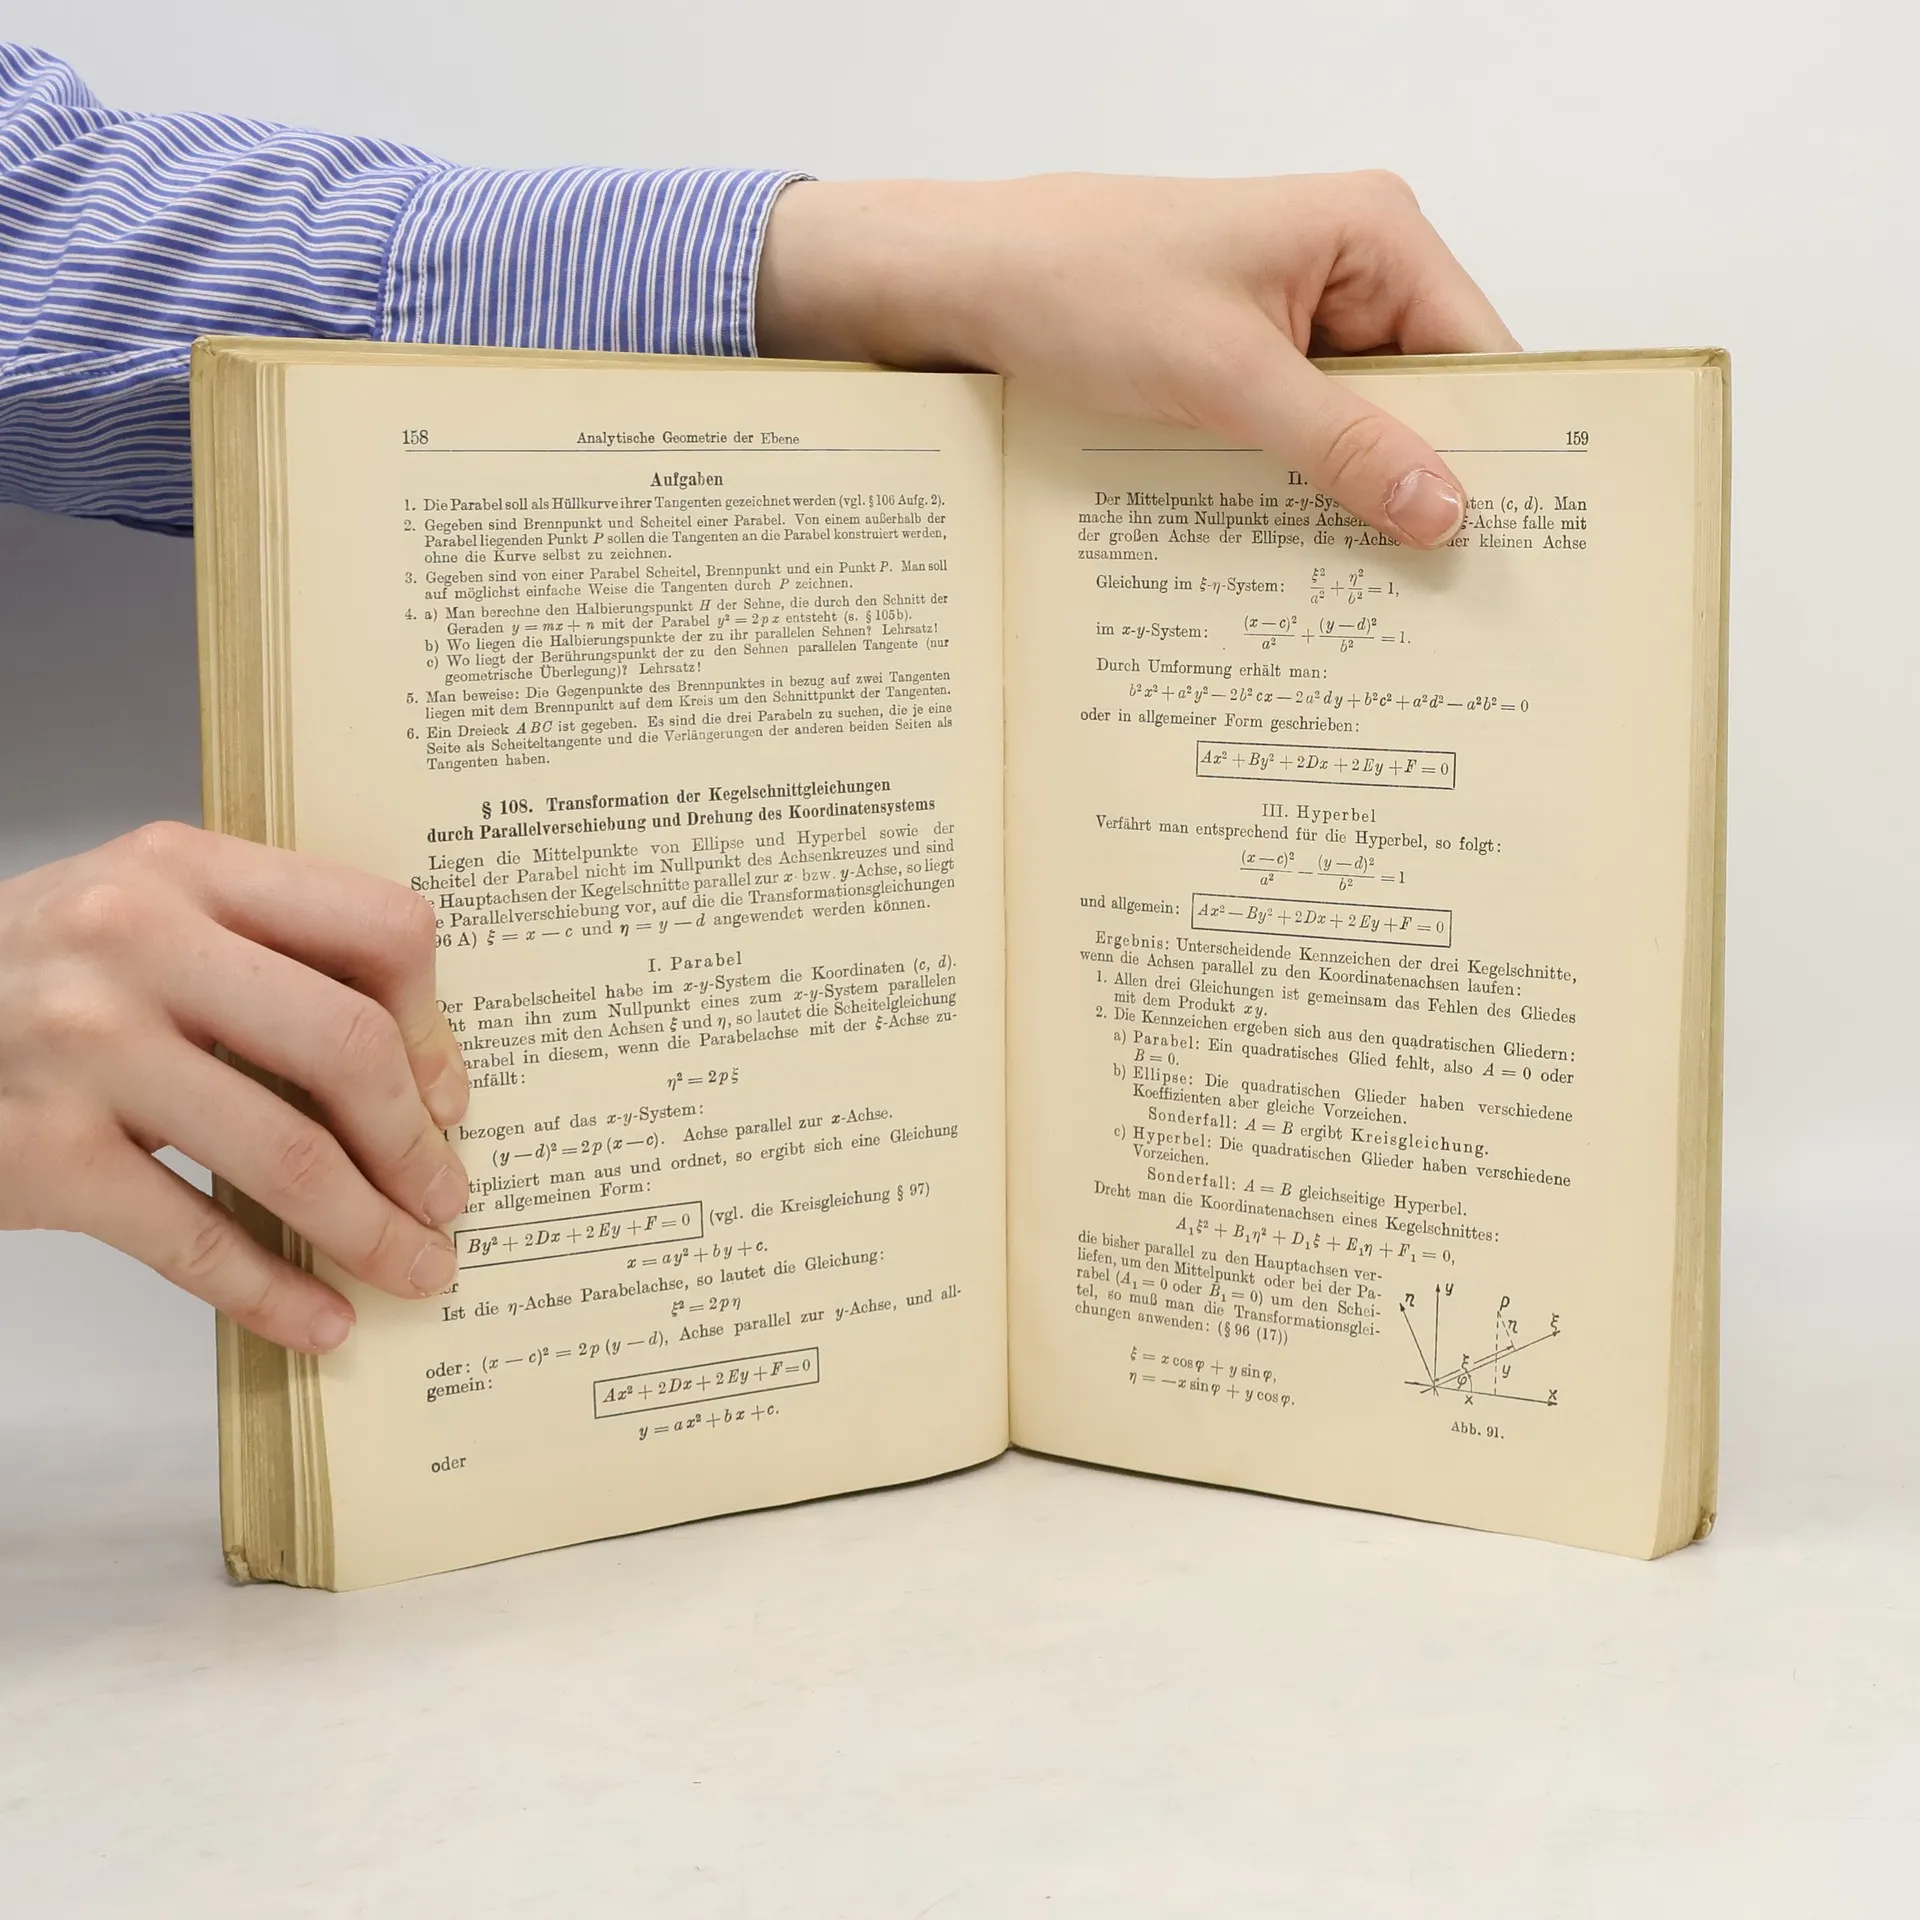 158 Analytische Geometrie der Ebene
Aufgaben
1. Die Parabel soll als Hüllkurve ihrer Tangenten gezeichnet werden (vgl. § 106 Aufg. 2).
2. Gegeben sind Brennpunkt und Scheitel einer Parabel. Von einem außerhalb der
Parabel liegenden Punkt P sollen die Tangenten an die Parabel konstruiert werden,
ohne die Kurve selbst zu zeichnen.
3. Gegeben sind von einer Parabel Scheitel, Brennpunkt und ein Punkt P. Man soll
auf möglichst einfache Weise die Tangenten durch P zeichnen.
4. a) Man berechne den Halbierungspunkt H der Sehne, die durch den Schnitt der
Geraden y = mx + n mit der Parabel y² = 2px entsteht (s. § 105b).
b) Wo liegen die Halbierungspunkte der zu ihr parallelen Sehnen? Lehrsatz!
c) Wo liegt der Berührungspunkt der zu den Sehnen parallelen Tangente (nur
geometrische Überlegung)? Lehrsatz!
5. Man beweise: Die Gegenpunkte des Brennpunktes in bezug auf zwei Tangenten
liegen mit dem Brennpunkt auf dem Kreis um den Schnittpunkt der Tangenten.
6. Ein Dreieck ABC ist gegeben. Es sind die drei Parabeln zu suchen, die je eine
Seite als Scheiteltangente und die Verlängerungen der anderen beiden Seiten als
Tangenten haben.
§ 108. Transformation der Kegelschnittgleichungen
durch Parallelverschiebung und Drehung des Koordinatensystems
Liegen die Mittelpunkte von Ellipse und Hyperbel sowie der
Scheitel der Parabel nicht im Nullpunkt des Achsenkreuzes und sind
Hauptachsen der Kegelschnitte parallel zur x- bzw. y-Achse, so liegt
e Parallelverschiebung vor, auf die die Transformationsgleichungen
96 A) ξ = x — c und η = y — d angewendet werden können.
I. Parabel
Der Parabelscheitel habe im x-y-System die Koordinaten (c, d).
ht man ihn zum Nullpunkt eines zum x-y-System parallelen
enkreuzes mit den Achsen ξ und η, so lautet die Scheitelgleichung
arabel in diesem, wenn die Parabelachse mit der ξ-Achse zu-
enfällt:
η² = 2pξ
t bezogen auf das x-y-System:
(y — d)² = 2p (x — c). Achse parallel zur x-Achse.
tipliziert man aus und ordnet, so ergibt sich eine Gleichung
er allgemeinen Form:
By² + 2Dx + 2Ey + F = 0 (vgl. die Kreisgleichung § 97)
er x = ay² + by + c.
Ist die η-Achse Parabelachse, so lautet die Gleichung:
ξ² = 2pη
oder: (x — c)² = 2p (y — d), Achse parallel zur y-Achse, und all-
gemein:
Ax² + 2Dx + 2Ey + F = 0
y = ax² + bx + c.
oder
159
II.
Der Mittelpunkt habe im x-y-Sys ten (c, d). Man
mache ihn zum Nullpunkt eines Achsen ξ-Achse falle mit
der großen Achse der Ellipse, die η-Achse der kleinen Achse
zusammen.
Gleichung im ξ-η-System: ξ²/a² + η²/b² = 1,
im x-y-System: (x — c)²/a² + (y — d)²/b² = 1.
Durch Umformung erhält man:
b²x² + a²y² — 2b²cx — 2a²dy + b²c² + a²d² — a²b² = 0
oder in allgemeiner Form geschrieben:
Ax² + By² + 2Dx + 2Ey + F = 0
III. Hyperbel
Verfährt man entsprechend für die Hyperbel, so folgt:
(x — c)²/a² — (y — d)²/b² = 1
und allgemein: Ax² — By² + 2Dx + 2Ey + F = 0
Ergebnis: Unterscheidende Kennzeichen der drei Kegelschnitte,
wenn die Achsen parallel zu den Koordinatenachsen laufen:
1. Allen drei Gleichungen ist gemeinsam das Fehlen des Gliedes
mit dem Produkt xy.
2. Die Kennzeichen ergeben sich aus den quadratischen Gliedern:
a) Parabel: Ein quadratisches Glied fehlt, also A = 0 oder
B = 0.
b) Ellipse: Die quadratischen Glieder haben verschiedene
Koeffizienten aber gleiche Vorzeichen.
Sonderfall: A = B ergibt Kreisgleichung.
c) Hyperbel: Die quadratischen Glieder haben verschiedene
Vorzeichen.
Sonderfall: A = B gleichseitige Hyperbel.
Dreht man die Koordinatenachsen eines Kegelschnittes:
A₁ξ² + B₁η² + D₁ξ + E₁η + F₁ = 0,
die bisher parallel zu den Hauptachsen ver-
liefen, um den Mittelpunkt oder bei der Pa-
rabel (A₁ = 0 oder B₁ = 0) um den Schei-
tel, so muß man die Transformationsglei-
chungen anwenden: (§ 96 (17))
ξ = x cos φ + y sin φ,
η = —x sin φ + y cos φ.
η y P η ξ
ξ φ y
x x
Abb. 91.